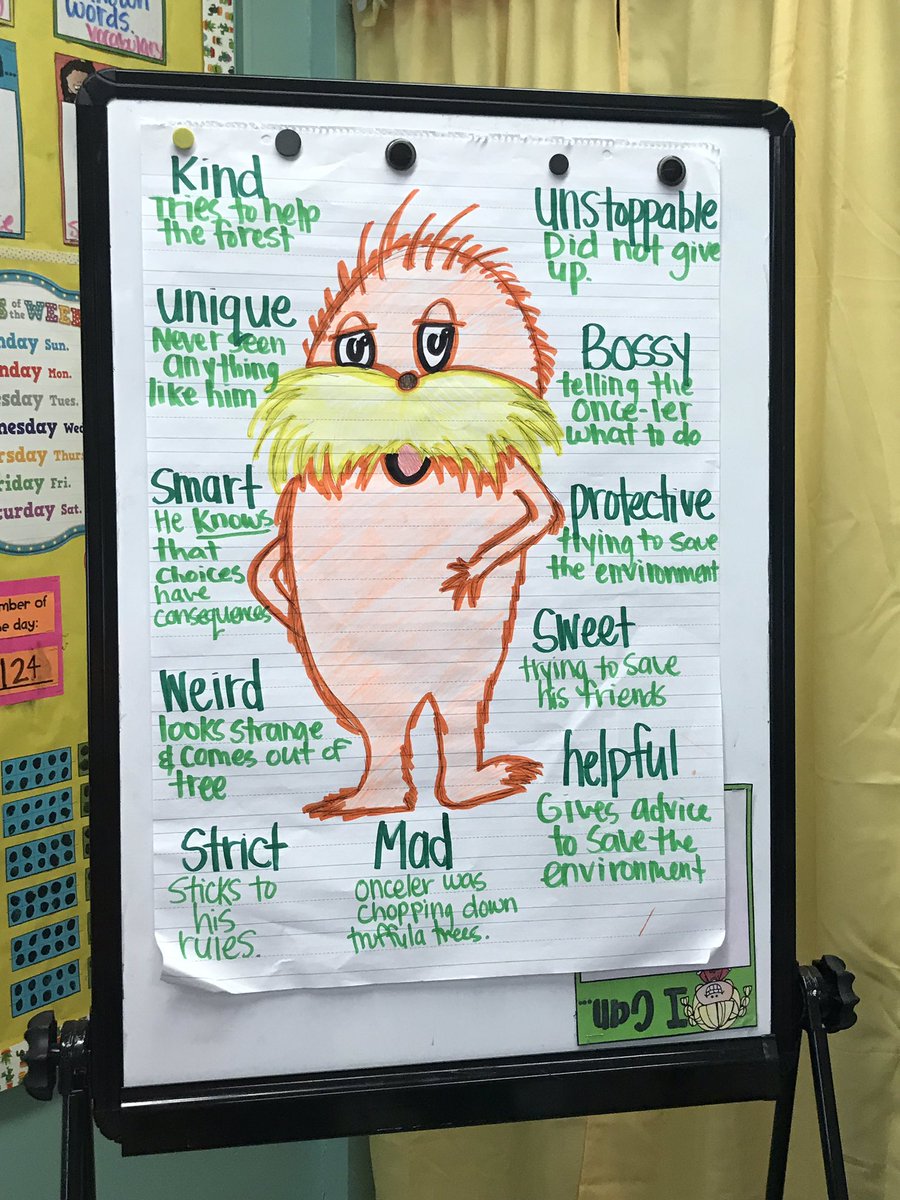 words.
vocabulary
of
the WEEK
Sun.
Mon.
Tues.
Friday Fri.
Saturday Sat.
the day:
124
Kind
Tries to help
the forest
unique
Never seen
anything
like him
Smart
He knows
that
choices
have
consequences
Weird
looks strange
& comes out of
tree
Strict
Sticks to
his
rules.
Mad
onceler was
chopping down
truffula trees.
unstoppable
Did not give
up.
Bossy
telling the
once-ler
what to do
protective
trying to save
the environment
Sweet
trying to save
his friends
helpful
Gives advice
to save the
environment
I Can...